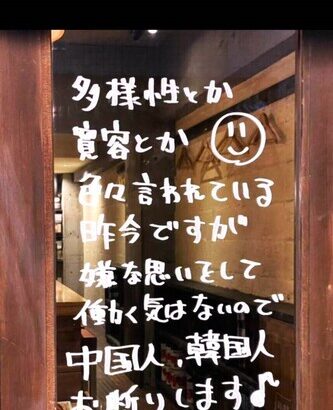 多様性とか
寛容とか
色々言われている
昨今ですが
嫌な思いをして
働く気はないので
中国人、韓国人
お断りします♪